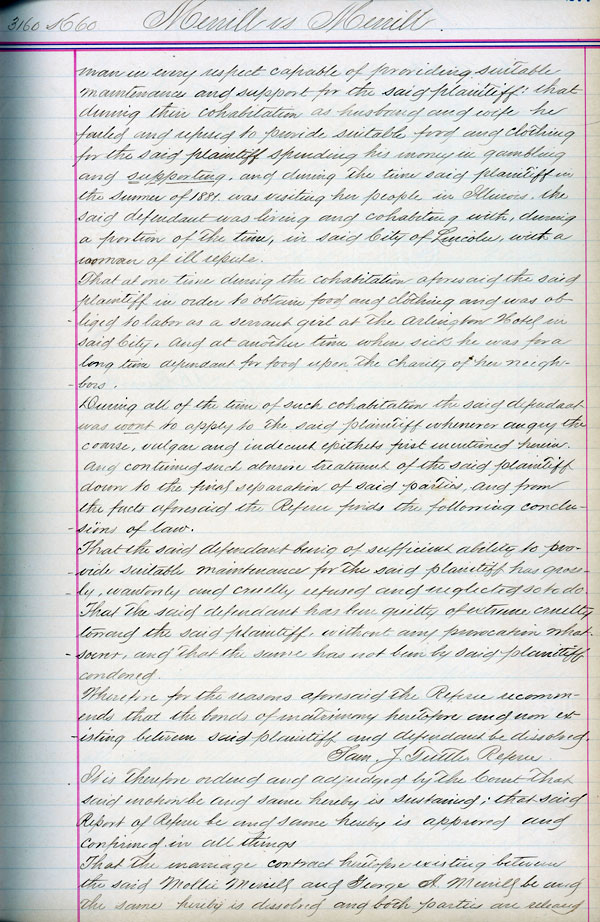 3160 L660 Merrill vs Merrill.
man in every respect capable of providing suitable
maintenance and support for the said plaintiff: that
during their cohabitation as husband and wife he
failed and refused to provide suitable food and clothing
for the said plaintiff spending his money in gambling
and supporting, and during the time said plaintiff in
the sumer of 1881. was visiting her people in Illinois, the
said defendant was living and cohabiting with, during
a portion of the time, in said City of Lincoln, with a
woman of ill repute.
That at one time during the cohabitation aforesaid the said
plaintiff in order to obtain food and clothing and was ob-
-liged to labor as a servant girl at the Arlington Hotel in
said City, and at another time when sick he was for a
long time dependant for food upon the charity of her neigh-
-bors.
During all of the time of such cohabitation the said defendant
was wont to apply to the said plaintiff whenever angry the
coarse, vulgar and indecent epithets first mentioned herein.
And continued such abusive treatment of the said plaintiff
down to the final separation of said parties, and from
the facts aforesaid the Referee finds the following conclu-
-sions of law.
That the said defendant being of sufficient ability to pro-
-vide suitable maintenance for the said plaintiff has gross-
-ly, wantonly and cruelly refused and neglected so to do.
That the said defendant has been guilty of extreme cruelty
toward the said plaintiff, without any provocation what-
-soever, and that the same has not been by said plaintiff
condoned.
Wherefore for the reasons aforesaid the Referee recomm-
ends that the bonds of matrimony heretofore and now ex-
-isting between said plaintiff and defendant be dissolved.
Sam. J. Tuttle Referee.
It is therefore ordered and adjudged by the Court that
said motion be and same hereby is sustained; that said
Report of Referee be and same hereby is approved and
confirmed in all things
That the marriage contract heretofore existing between
the said Mollie Merrill and George A. Merrill be and
the same hereby is dissolved and both parties are released